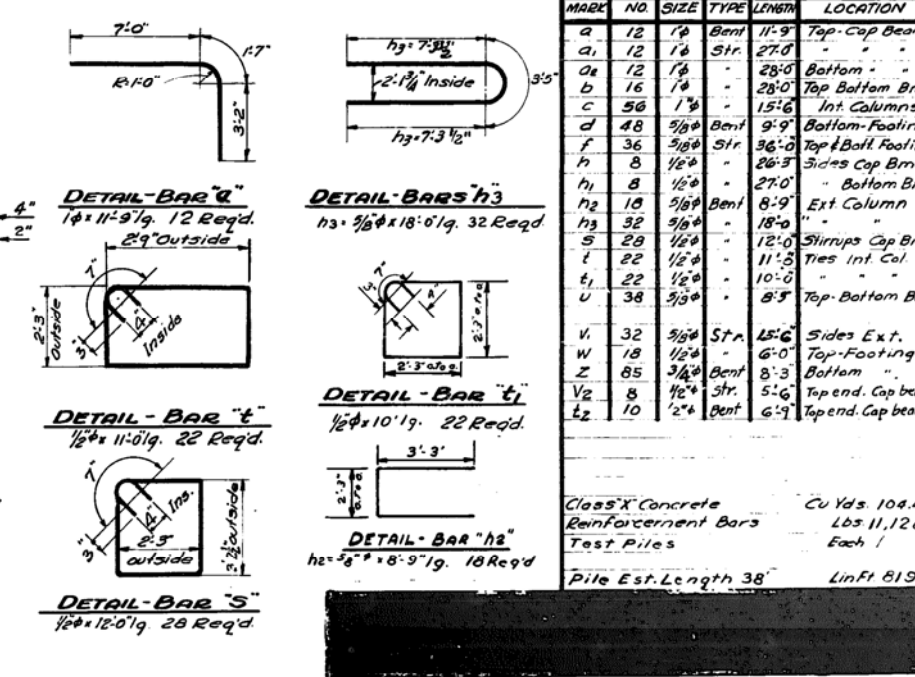 7'-0"
1'-7"
R=1'-0"
3'-2"
DETAIL-BAR "a"
1"φ x 11'-9" lg. 12 Req'd.
2'-1¾" Inside
3'-5"
h3=7'-3½"
DETAIL-BARS "h3
h3 = 5/8"φ x 18'-0" lg. 32 Reqd
4"
2"
2'-9" Outside
7"
2'-3" outside
3"
4" Inside
DETAIL - BAR "t"
½"φ x 11'-0" lg. 22 Req'd.
7"
2'-3" o. to o.
2'-3" o. to o.
DETAIL - BAR "t1
½"φ x 10' lg. 22 Req'd.
7"
4" Ins.
3"
2'-3" outside
3'-2½" outside
DETAIL-BAR "S"
½"φ x 12'-0" lg. 28 Req'd.
3'-3"
2'-3" o. to o.
DETAIL - BAR "h2"
h2 = 5/8"φ x 8'-9" lg. 18 Req'd
MARK NO. SIZE TYPE LENGTH LOCATION
a 12 1"φ Bent 11'-9" Top-Cap
a1 12 1"φ Str. 27'-0" " "
12 1"φ " 28'-0" Bottom " "
b 16 1"φ " 28'-0" Top Bottom
c 56 1"φ " 15'-6" Int. Columns
d 48 5/8"φ Bent 9'-9" Bottom-
f 36 5/8"φ Str. 36'-0" Top & Bott.
h 8 ½"φ " 26'-3" Sides Cap Bm
h1 8 ½"φ " 27'-0" " Bottom
h2 18 5/8"φ Bent 8'-9" Ext. Column
h3 32 5/8"φ " 18'-0 " "
S 28 ½"φ " 12'-0" Stirrups Cap
t 22 ½"φ " Ties Int. Col.
t1 22 ½"φ " 10'-0" " "
U 38 5/8"φ " Top-Bottom
V. 32 5/8"φ Str. 15'-6" Sides Ext.
W 18 ½"φ " 6'-0" Top-Footing
Z 85 ¾"φ Bent 8'-3" Bottom "
V2 8 ½"φ Str. 5'-6" Top end. Cap
t2 10 ½"φ Bent 6'-9" Top end. Cap
Class "X" Concrete Cu Yds. 104.
Reinforcement Bars Lbs.
Test Piles Each 1
Pile Est. Length 38' Lin Ft. 819